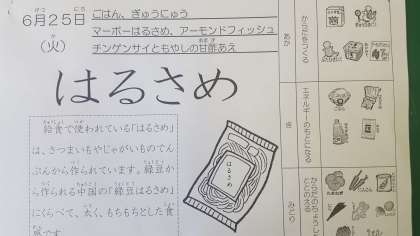 6月25日
(火)
ごはん、ぎゅうにゅう
マーボーはるさめ、アーモンドフィッシュ
チンゲンサイともやしの甘酢あえ
はるさめ
給食で使われている「はるさめ」
は、さつまいもやじゃがいものでん
ぷんから作られています。緑豆か
ら作られる中国の「緑豆はるさめ」
にくらべて、太く、もちもちとした食
感です。
はるさめ
あか
からだをつくる
き
エネルギーのもとになる
みどり
からだのちょうしを
ととのえる